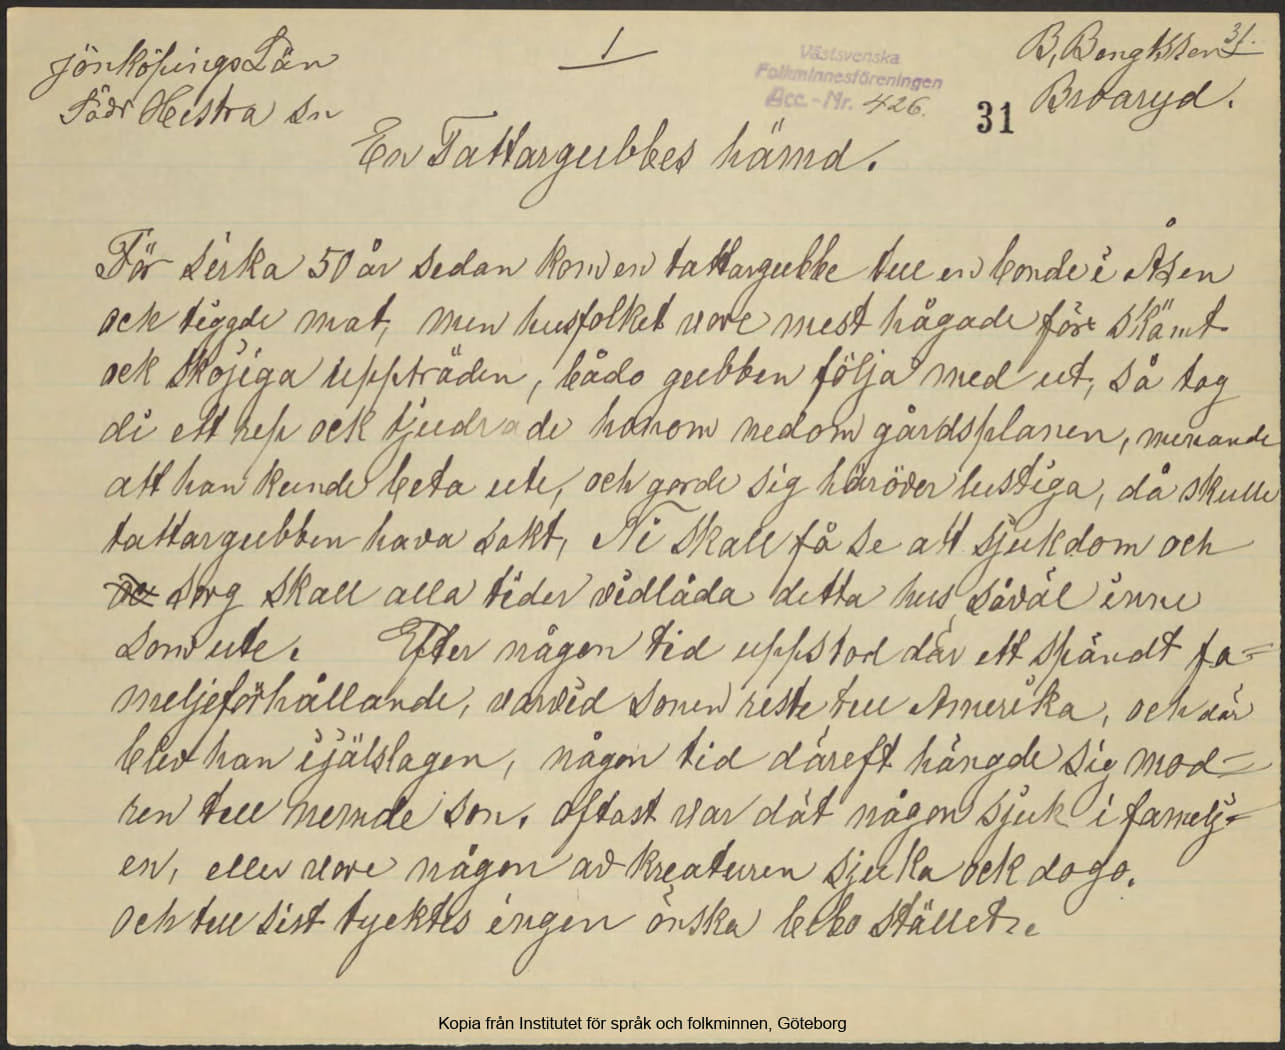 Jönköpings Län
Södr Hestra sn
1
Västsvenska
Folkminnesföreningen
Acc.-Nr. 426.
31
B, Bengtsson 31.
Broaryd.
En Tattargubbes hämd.
För sirka 50 år sedan kom en tattargubbe till en bonde i Åsen
ock tiggde mat, men husfolket vore mest hågade för skämt
ock skojiga uppträden, bådo gubben följa med ut, så tog
di ett rep ock tjudrade honom nedom gårdsplanen, menande
att han kunde beta ute, och gorde sig häröver lustiga, då skulle
tattargubben hava sakt, Ni skall få se att sjukdom och
sorg skall alla tider vidlåda detta hus såväl inne
som ute. Efter någon tid uppstod där ett spändt fa=
meljeförhållande, varvid sonen reste till Amerika, och där
blev han ijälslagen, någon tid däreft hängde sig mod=
ren till nemde son. oftast var dät någon sjuk i famelj=
en, eller vore någon av kreaturen sjuka ock dogo.
och till sist tycktes ingen önska bebo stället.
Kopia från Institutet för språk och folkminnen, Göteborg